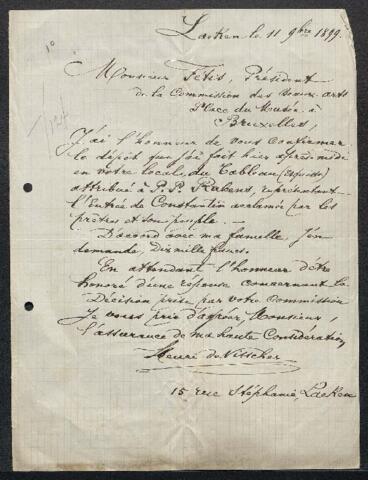 Laeken le 11 9bre 1899.
1°
Monsieur Fétis, Président
de la Commission des beaux-arts
Place du Musée. à
Bruxelles,
J'ai l'honneur de vous confirmer
le dépôt que j'ai fait hier après-midi
en votre local, du Tableau (esquisse)
attribué à P. P. Rubens, représentant
l'Entrée de Constantin acclamé par les
prêtres et son peuple. —
D'accord avec ma famille, j'en
demande dix mille francs.
En attendant l'honneur d'être
honoré d'une réponse concernant la
Décision prise par votre Commission
Je vous prie d'agréer, Monsieur,
l'assurance de ma haute Considération,
Henri de Visscher
15 rue Stéphanie, Laeken